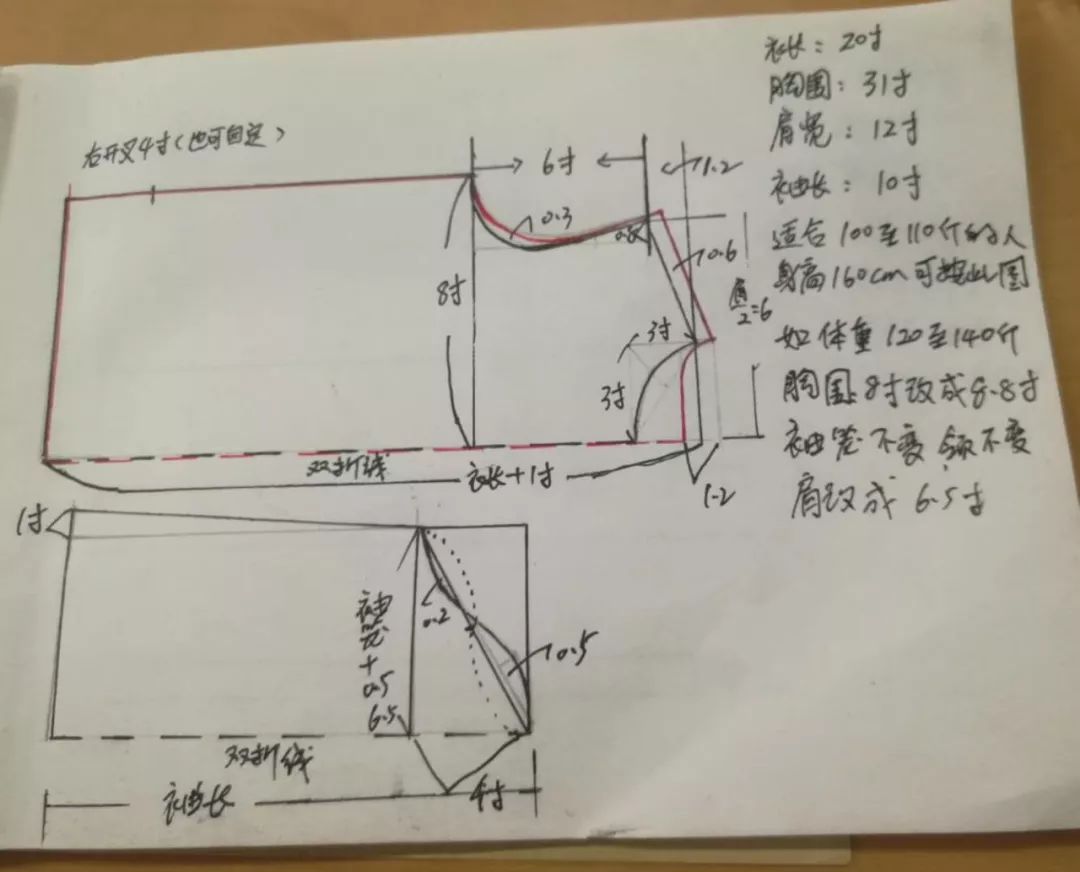 衣长：20寸
胸围：31寸
肩宽：12寸
袖长：10寸
适合100至110斤的人
身高160cm可按此图
如体重120至140斤
胸围8寸改成8.8寸
袖笼不变领不变
肩改成6.5寸
右开叉4寸(也可自定)
6寸
1.2
0.3
0.8
0.6
8寸
肩/2=6
3寸
3寸
双折线
衣长+1寸
1.2
1寸
袖笼+0.5
6.5
0.2
0.5
双折线
袖长
4寸